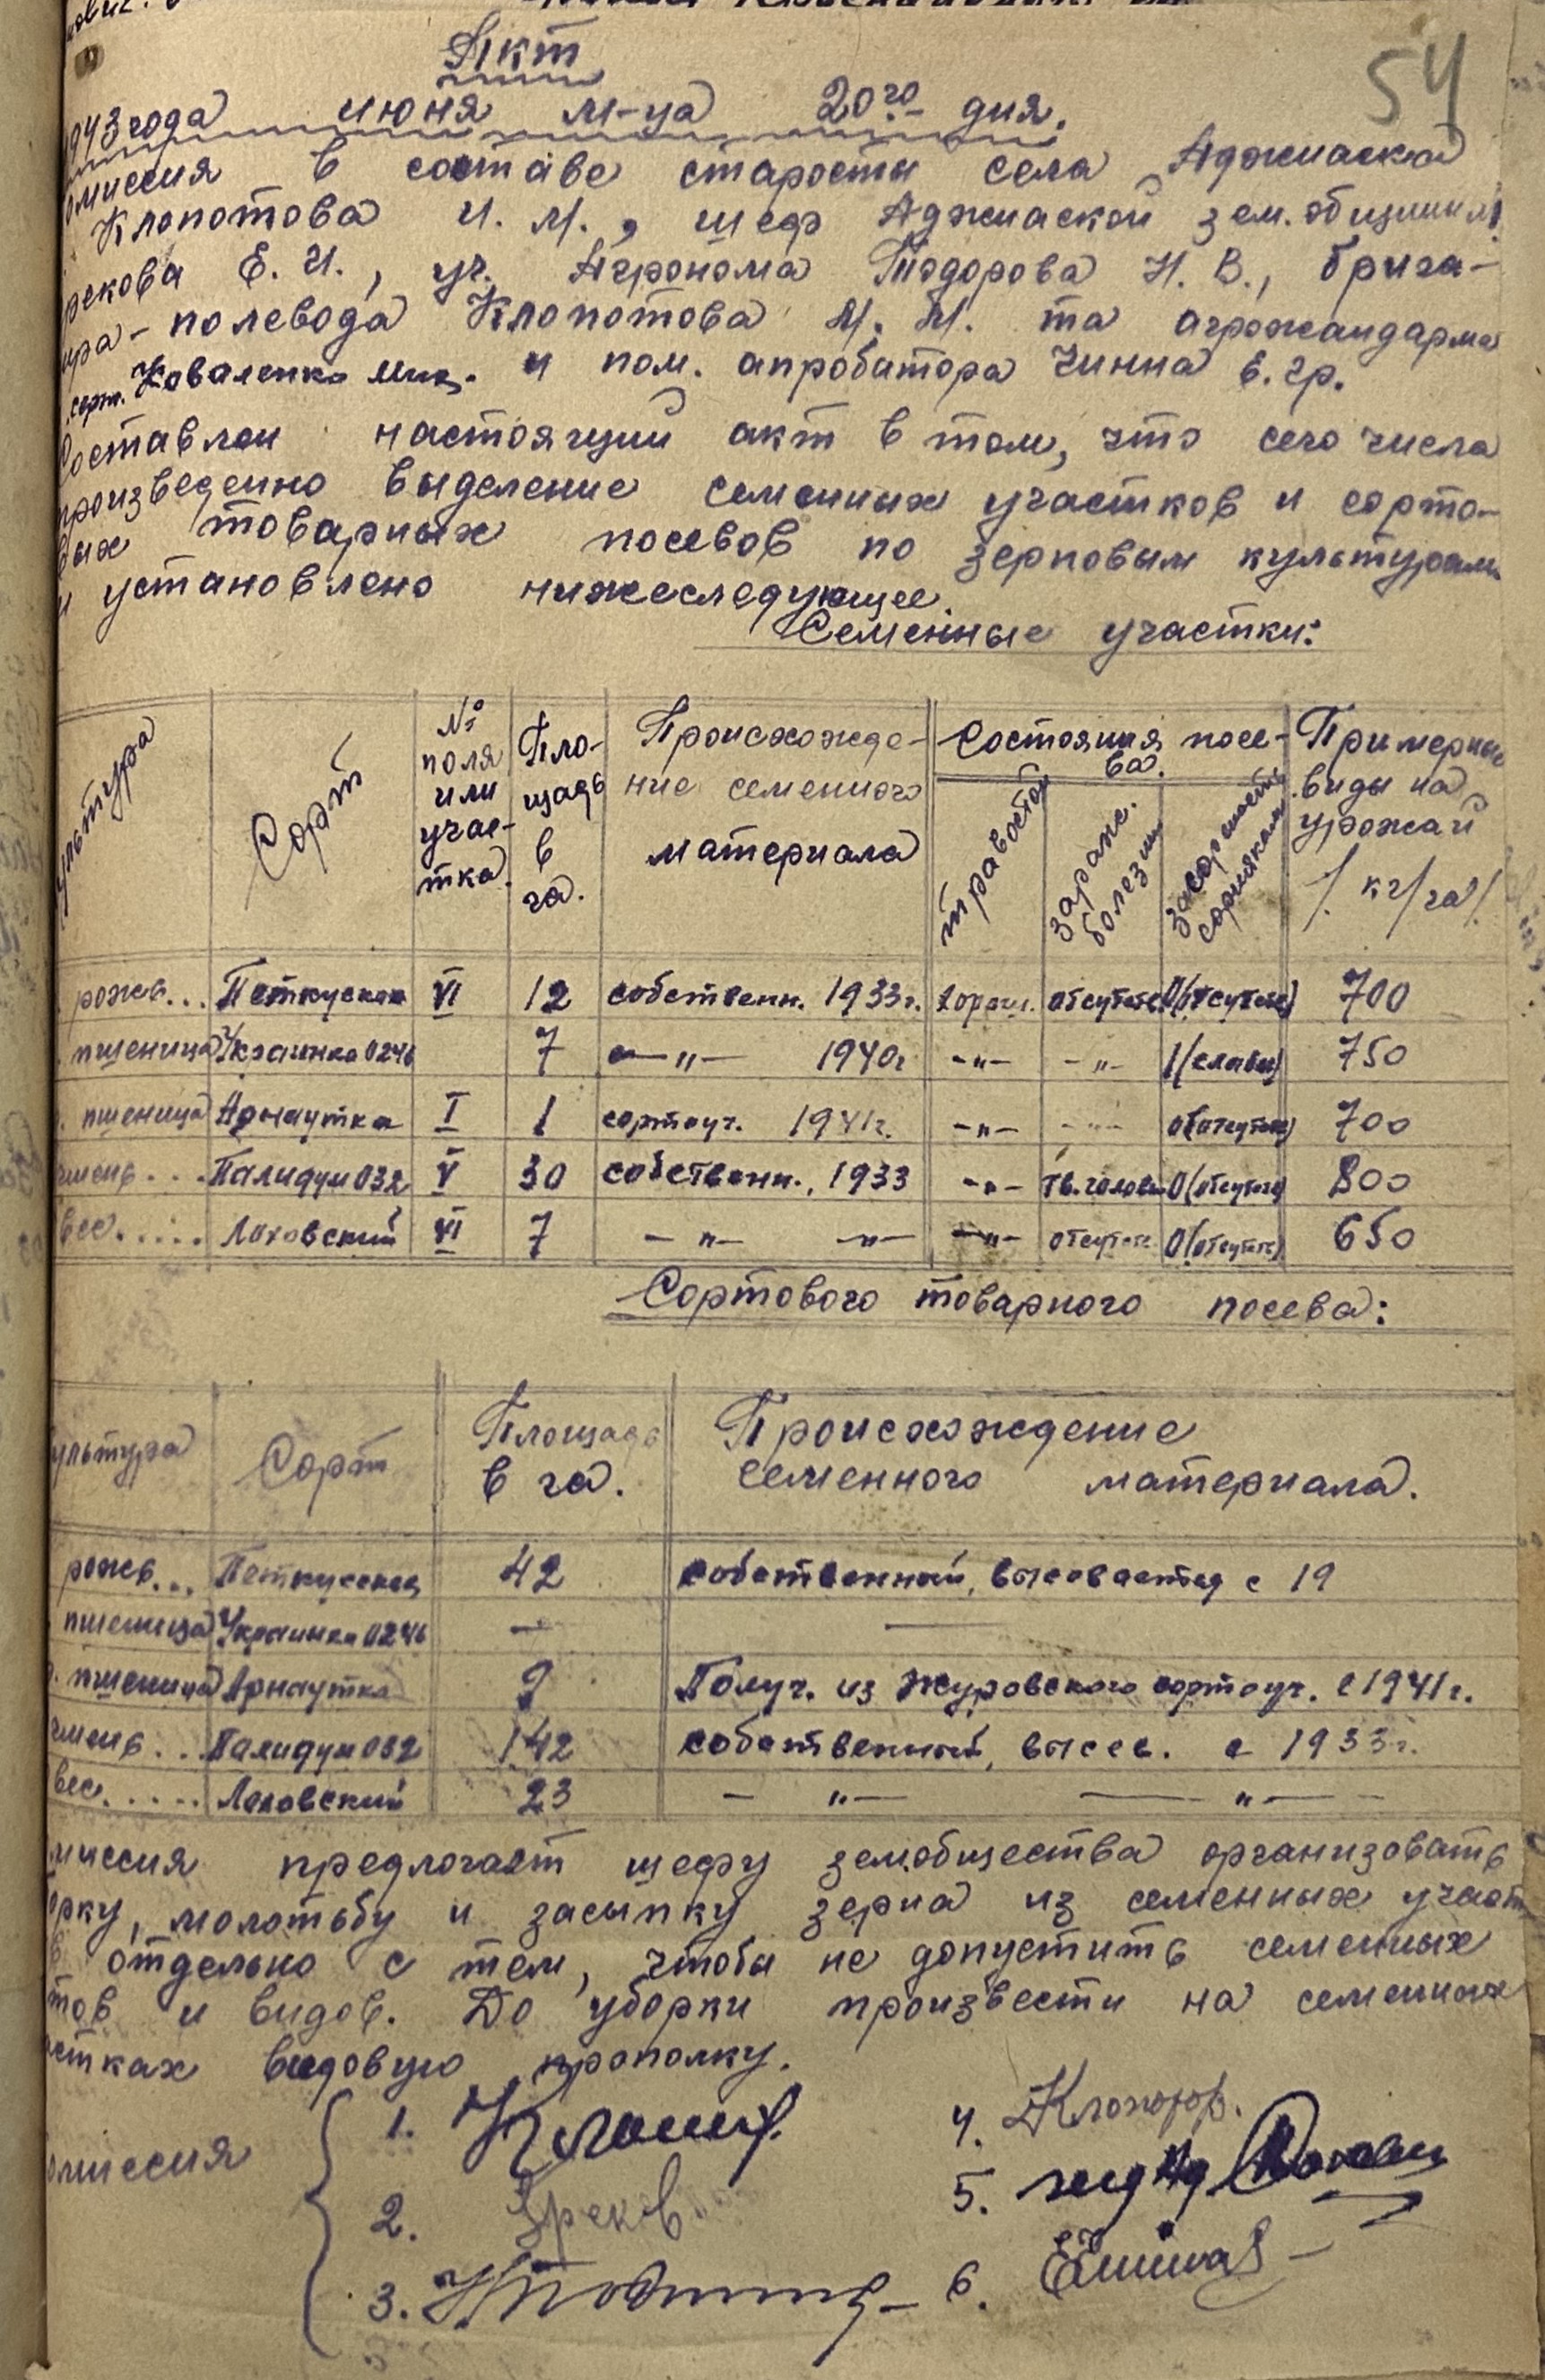 Акт
54
1943 года июня м-ца 20го дня.
омиссия в составе старосты села Аджиаска
Клопотова И. М., шеф Аджиаской зем. общины
рекова Е. И., уч. Агронома Тодорова Н. В., брига-
ира-полевода Клопотова М. М. та агрожандарма
серж. Коваленко Мих. и пом. апробатора Чинна Е. Гр.
Составлен настоящий акт в том, что сего числа
произведенно выделение семенных участков и сорто-
вых товарных посевов по зерновым культурам
и установлено нижеследующее.
Семенные участки:
ультура Сорт № поля или учас-тка. Пло-щадь в га. Происхожде-ние семенного материала Состояния посе-ва. травостой зараж. болезни засоренность сорняками Примерные виды на урожай /кг/га/
рожь... Петкуская VI 12 собственн. 1933г. хорош. отсутств. 0(отсутств) 700
пшеница Украинка 0246 7 —"— 1940г —"— —"— 1(слабы) 750
пшеница Арнаутка I 1 сортоуч. 1941г. —"— —"— 0(отсутств) 700
чмень... Палидум 032 V 30 собственн., 1933 —"— тв. головн 0(отсутств) 800
вес..... Лоховский VI 7 —"— —"— —"— отсутств 0(отсутств) 650
Сортового товарного посева:
ультура Сорт Площадь в га. Происхождение семенного материала.
рожь... Петкусская 42 собственный, высевается с 19
пшеница Украинка 0246 — —
пшеница Арнаутка 9 Получ. из Журовского сортоуч. с 1941г.
чмень... Палидум 032 142 собственный, высев. с 1933г.
вес..... Лоховский 23 —"— —"—
миссия предлогает шефу земобщества организовать
орку, молотьбу и засыпку зерна из семенных участ
отдельно с тем, чтобы не допустить семенных
тов и видов. До уборки произвести на семенных
стках видовую прополку.
омиссия
1.
2. Греков
3.
4. Клопотов.
5.
6.